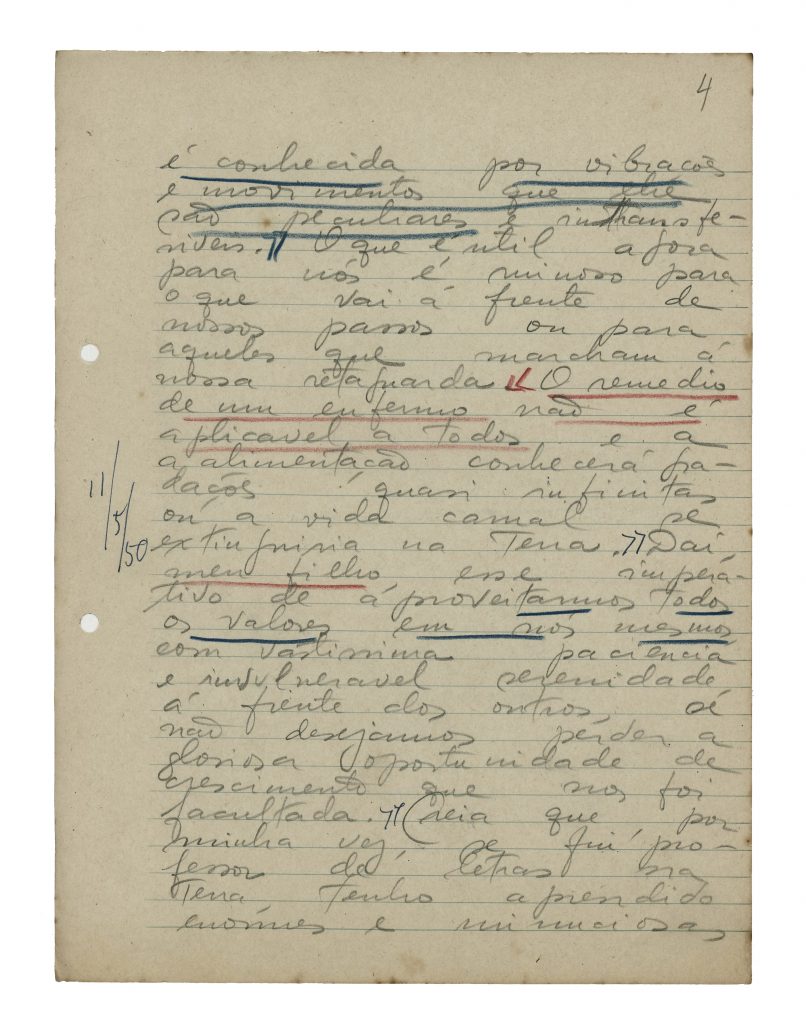 4
é conhecida por vibrações
e movimentos que lhe
são peculiares e intransfe-
riveis. " O que é útil agora
para nós é ruinoso para
o que vai á frente de
nossos passos ou para
aqueles que marcham á
nossa retaguarda " O remedio
de um enfermo não é
aplicavel a todos e a
a alimentação conhecerá gra-
dações quasi infinitas
ou a vida carnal se
extinguiria na Terra. " Daí,
meu filho, esse impera-
tivo de aproveitarmos todos
os valores em nós mesmos
com vastissima paciência
e invulneravel serenidade
á frente dos outros, se
não desejamos perder a
gloriosa oportunidade de
crescimento que nos foi
facultada. " Creia que por
minha vez, se fui pro-
fessor de letras na
Terra, tenho aprendido
enormes e minuciosas
11/5/50